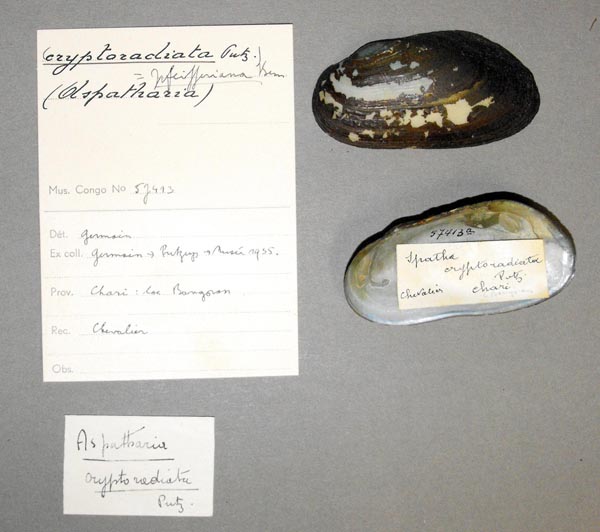 cryptoradiata Putz.
= pfeifferiana Bern
(Aspatharia)
Mus. Congo No 57413
Dét. Germain
Ex coll. Germain → Putzeys → Musée 1935.
Prov. Chari : lac Bangoran
Rec. Chevalier
Obs.
Aspatharia
cryptoradiata
Putz.
57413
Spatha
cryptoradiata
Putz
Chevalier Chari